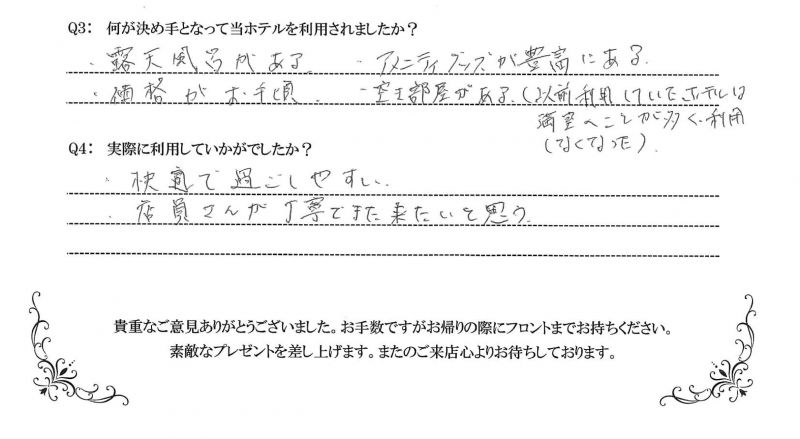 Q3： 何が決め手となって当ホテルを利用されましたか？
・露天風呂がある。 ・アメニティグッズが豊富にある。
・価格がお手頃。 ・空き部屋がある。（以前利用していたホテルは
満室のことが多く、利用
しなくなった）。
Q4： 実際に利用していかがでしたか？
・快適で過ごしやすい。
・店員さんが丁寧でまた来たいと思う。
貴重なご意見ありがとうございました。お手数ですがお帰りの際にフロントまでお持ちください。
素敵なプレゼントを差し上げます。またのご来店心よりお待ちしております。